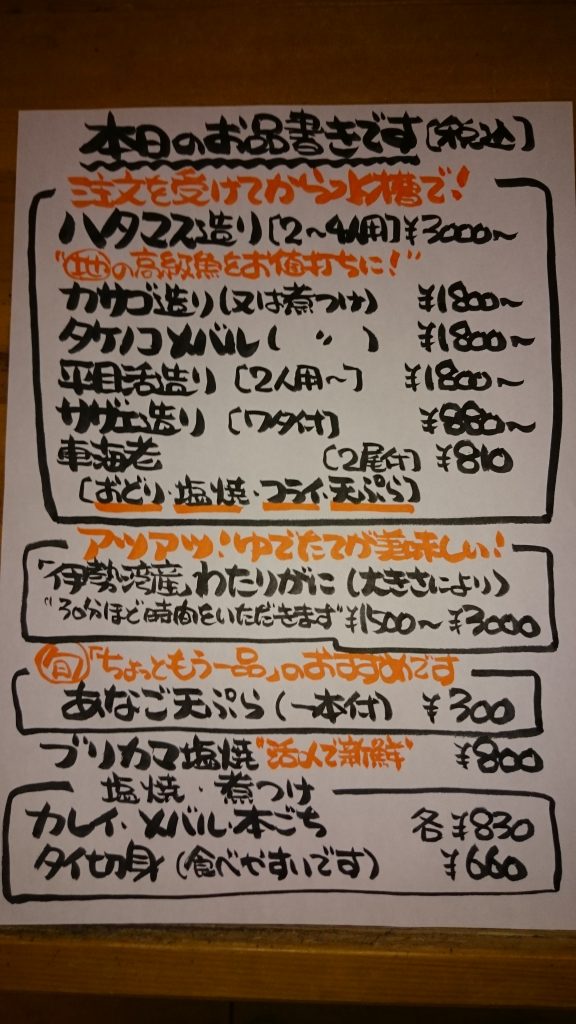 本日のお品書きです[税込]
注文を受けてから水槽で!
ハタマス造り[2〜4人用]¥3000〜
"地の高級魚をお値打ちに!"
カサゴ造り(又は煮つけ) ¥1800〜
タケノコメバル( 〃 ) ¥1800〜
平目活造り[2人用〜] ¥1800〜
サザエ造り[ワタ付] ¥880〜
車海老 [2尾付] ¥810
[おどり・塩焼・フライ・天ぷら]
アツアツ!ゆでたてが美味しい!
「伊勢湾産」わたりがに(大きさにより)
"30分ほど時間をいただきます"¥1500〜¥3000
旬「ちょっともう一品」のおすすめです
あなご天ぷら(一本付) ¥300
ブリカマ塩焼"活〆で新鮮" ¥800
塩焼・煮つけ
カレイ・メバル・本ごち 各¥830
タイ切身(食べやすいです) ¥660